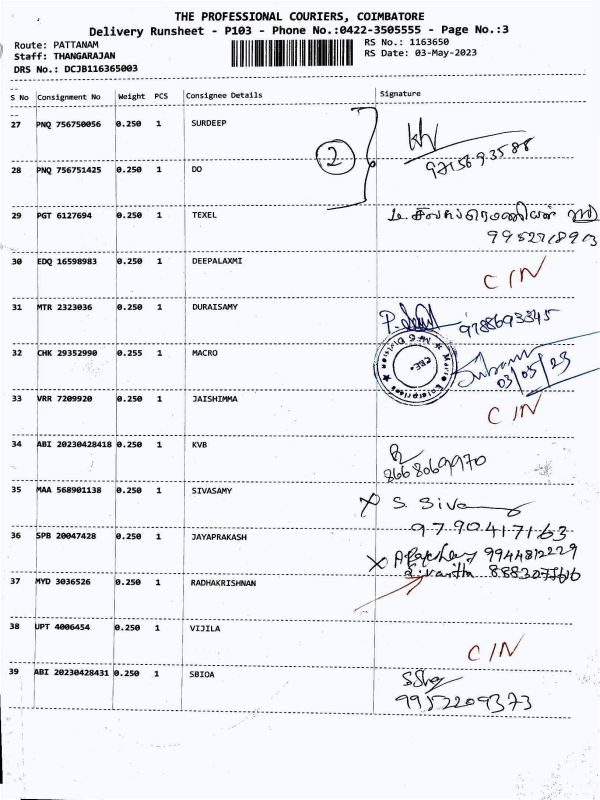 THE PROFESSIONAL COURIERS, COIMBATORE
Delivery Runsheet - P103 - Phone No.:0422-3505555 - Page No.:3
Route: PATTANAM
RS No.: 1163650
Staff: THANGARAJAN
RS Date: 03-May-2023
DRS No.: DCJB116365003
--
S No Consignment No Weight PCS Consignee Details Signature
--
27 PNQ 756750056 0.250 1 SURDEEP
2
28 PNQ 756751425 0.250 1 DO
29 PGT 6127694 0.250 1 TEXEL
30 EDQ 16598983 0.250 1 DEEPALAXMI
C/N
31 MTR 2323036 0.250 1 DURAISAMY
9788693845
32 CHK 29352990 0.255 1 MACRO
Enterprises MFG Division CBE.
03/05/23
33 VRR 7209920 0.250 1 JAISHIMMA
C/N
34 ABI 20230428418 0.250 1 KVB
8668069970
35 MAA 568901138 0.250 1 SIVASAMY
X S. Siva
9790417163
36 SPB 20047428 0.250 1 JAYAPRAKASH
X 9944812229
37 MYD 3036526 0.250 1 RADHAKRISHNAN
38 UPT 4006454 0.250 1 VIJILA
C/N
39 ABI 20230428431 0.250 1 SBIOA
9952209373